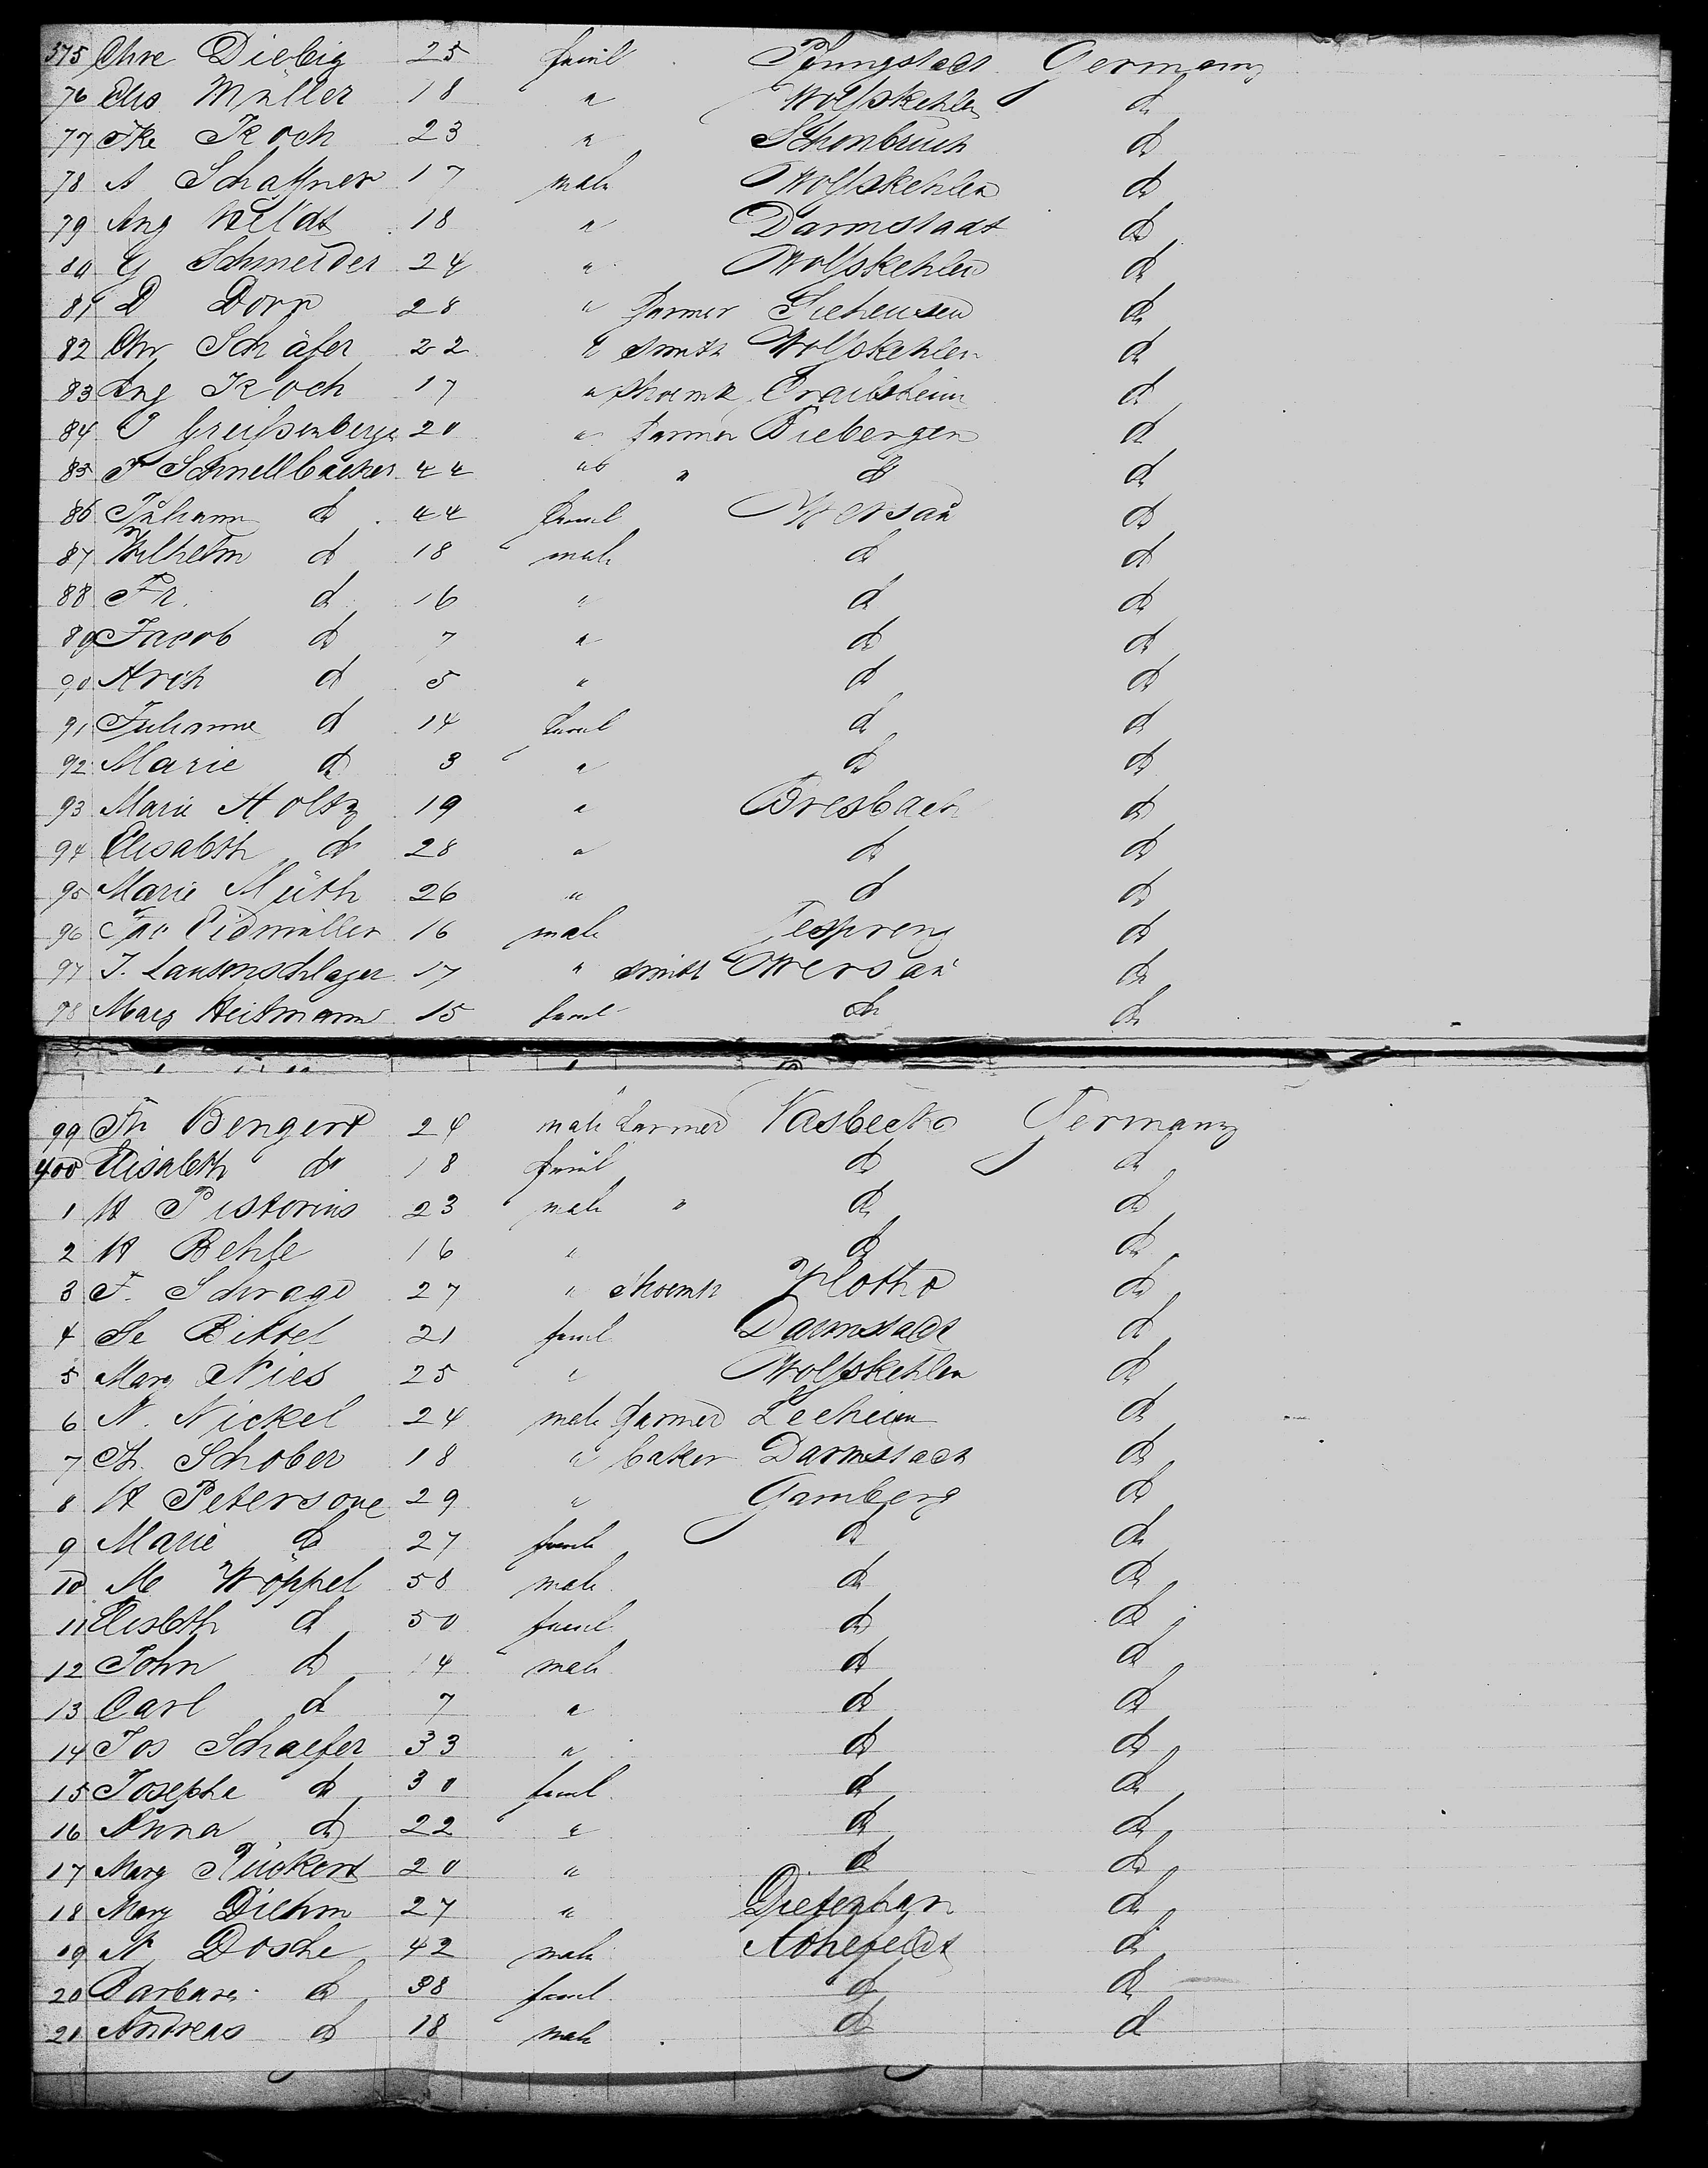 375 Chre Diebig 25 feml Pfungstadt Germany
76 Elis Müller 18 " Wolfskehlen do
77 Fke Koch 23 " Schönbruch do
78 A Schaffner 17 male Wolfskehlen do
79 Aug Wildt 18 " Darmstadt do
80 G Schneider 24 " Wolfskehlen do
81 D Dorn 28 " farmer do
82 Chr Schäfer 22 " smith Wolfskehlen do
83 Aug Koch 17 " shoemk Crailsheim do
84 J Greifsenberger 20 " farmer Biebergen do
85 F Schnellbächer 44 " " do do
86 Juliann do 44 feml Wersau do
87 Wilhelm do 18 male do do
88 Fr. do 16 " do do
89 Jacob do 7 " do do
90 do 5 " do do
91 Julianne do 14 feml do do
92 Marie do 3 " do do
93 Marie Holtz 19 " Bresbach do
94 Elisabeth do 28 " do do
95 Marie Müth 26 " do do
96 Jac Eidmüller 16 male do
97 J. Lautenschlager 17 " smith Wersau do
98 Marg Heitmann 15 feml do do
99 Fr Bengert 24 male farmer Vasbeck Germany
400 Elisabeth do 18 feml do do
1 H Pistorius 23 male " do do
2 H Behle 16 " do do
3 F. Schrage 27 " shoemk Vlotho do
4 Se Bittel 21 feml Darmstadt do
5 Marg Nies 25 " Wolfskehlen do
6 N. Nickel 24 male farmer Leeheim do
7 Th. Schober 18 " baker Darmstadt do
8 H Petersone 29 " Gamberg do
9 Marie do 27 feml do do
10 M Wöppel 58 male do do
11 Elisbth do 50 feml do do
12 John do 14 male do do
13 Carl do 7 " do do
14 Jos Schaefer 33 " do do
15 Josepha do 30 feml do do
16 Anna do 22 " do do
17 Marg Rückert 20 " do do
18 Marg Diehm 27 " Dietenhan do
19 N Dosche 42 male do
20 Barbara do 38 feml do do
21 Andreas do 18 male do do